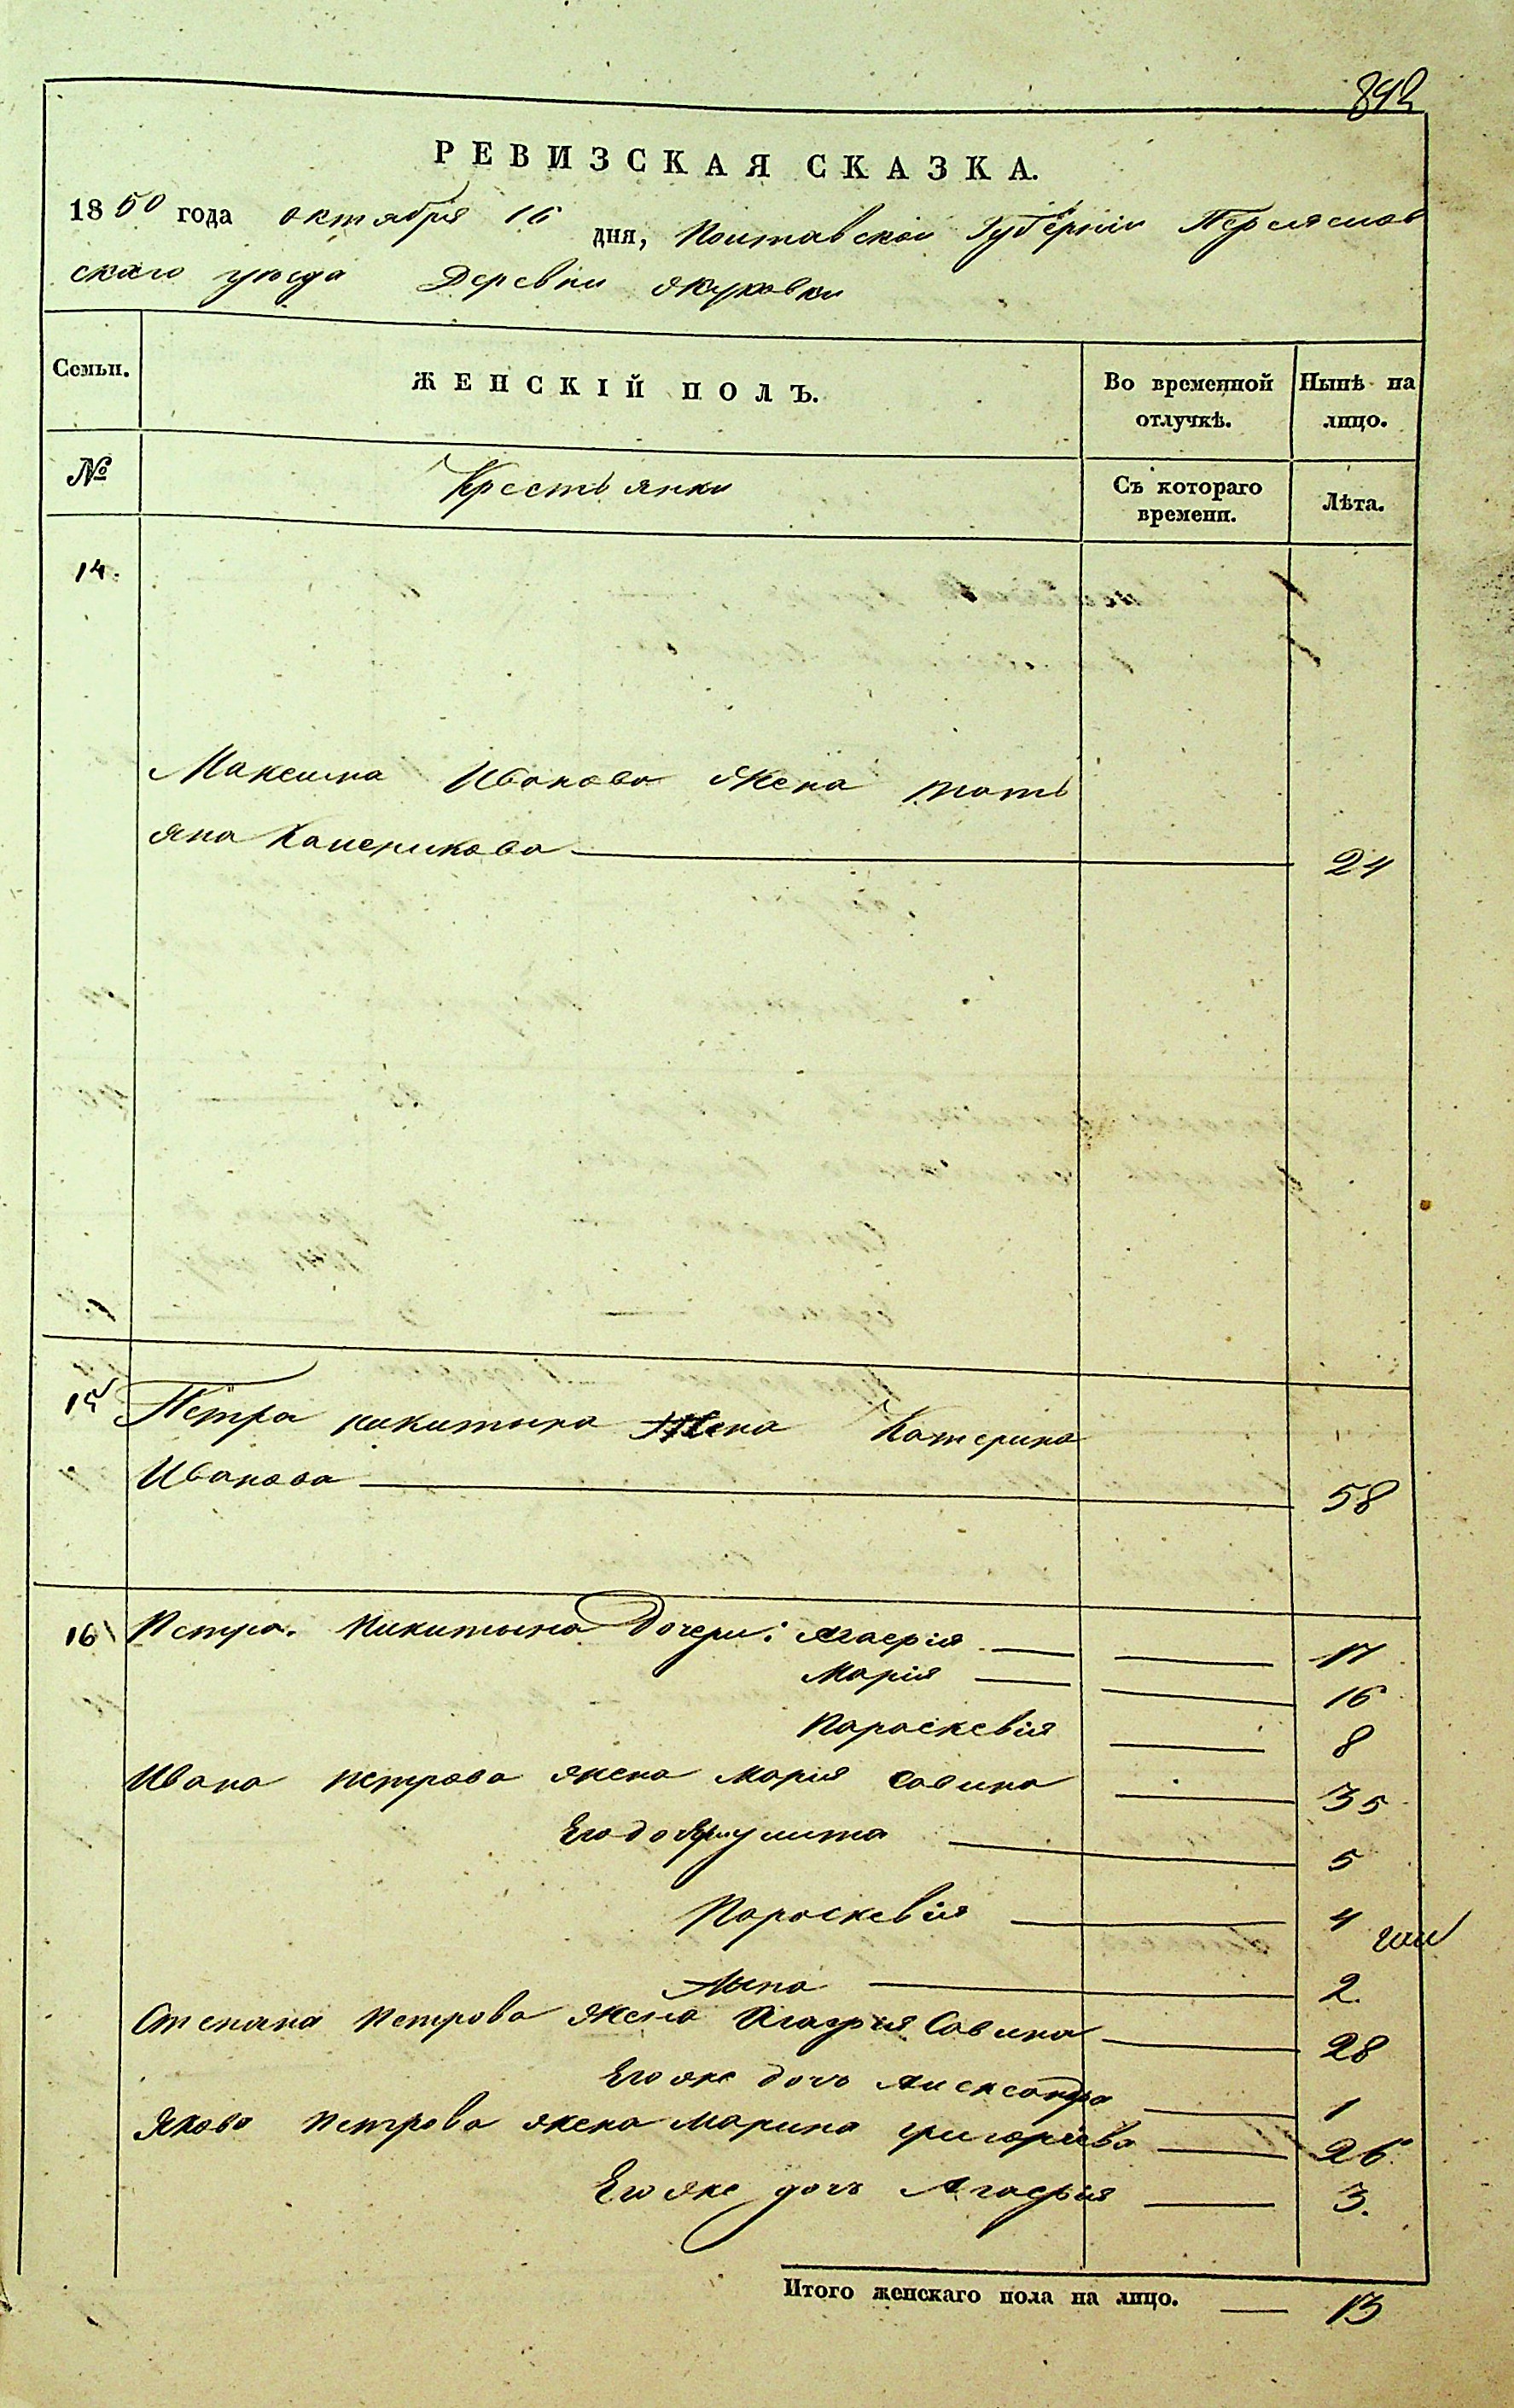 842
РЕВИЗСКАЯ СКАЗКА.
1850 года октября 16 дня, Полтавской Губерніи Переяслов
скаго уезда Деревни Якуковки
Семьи.
ЖЕНСКІЙ ПОЛЪ.
Во временной отлучкѣ.
Нынѣ на лицо.
№
Крестьянки
Съ котораго времени.
Лѣта.
14.
Максима Иванова жена тать
яна 24
15 Петра никитина жена Катерина
Иванова 58
16 Петра Никитина Дочери: Агафія 17
Марія 16
Параскевія 8
Ивана петрова жена Марія Савина 35
Его дочери улита 5
Параскевія 4
Анна 2.
Степана Петрова жена Агафія Савина 28
Его же дочь Александра 1
Якова Петрова жена Марина григоріева 26.
Его же дочь Агафія 3.
Итого женскаго пола на лицо. 13